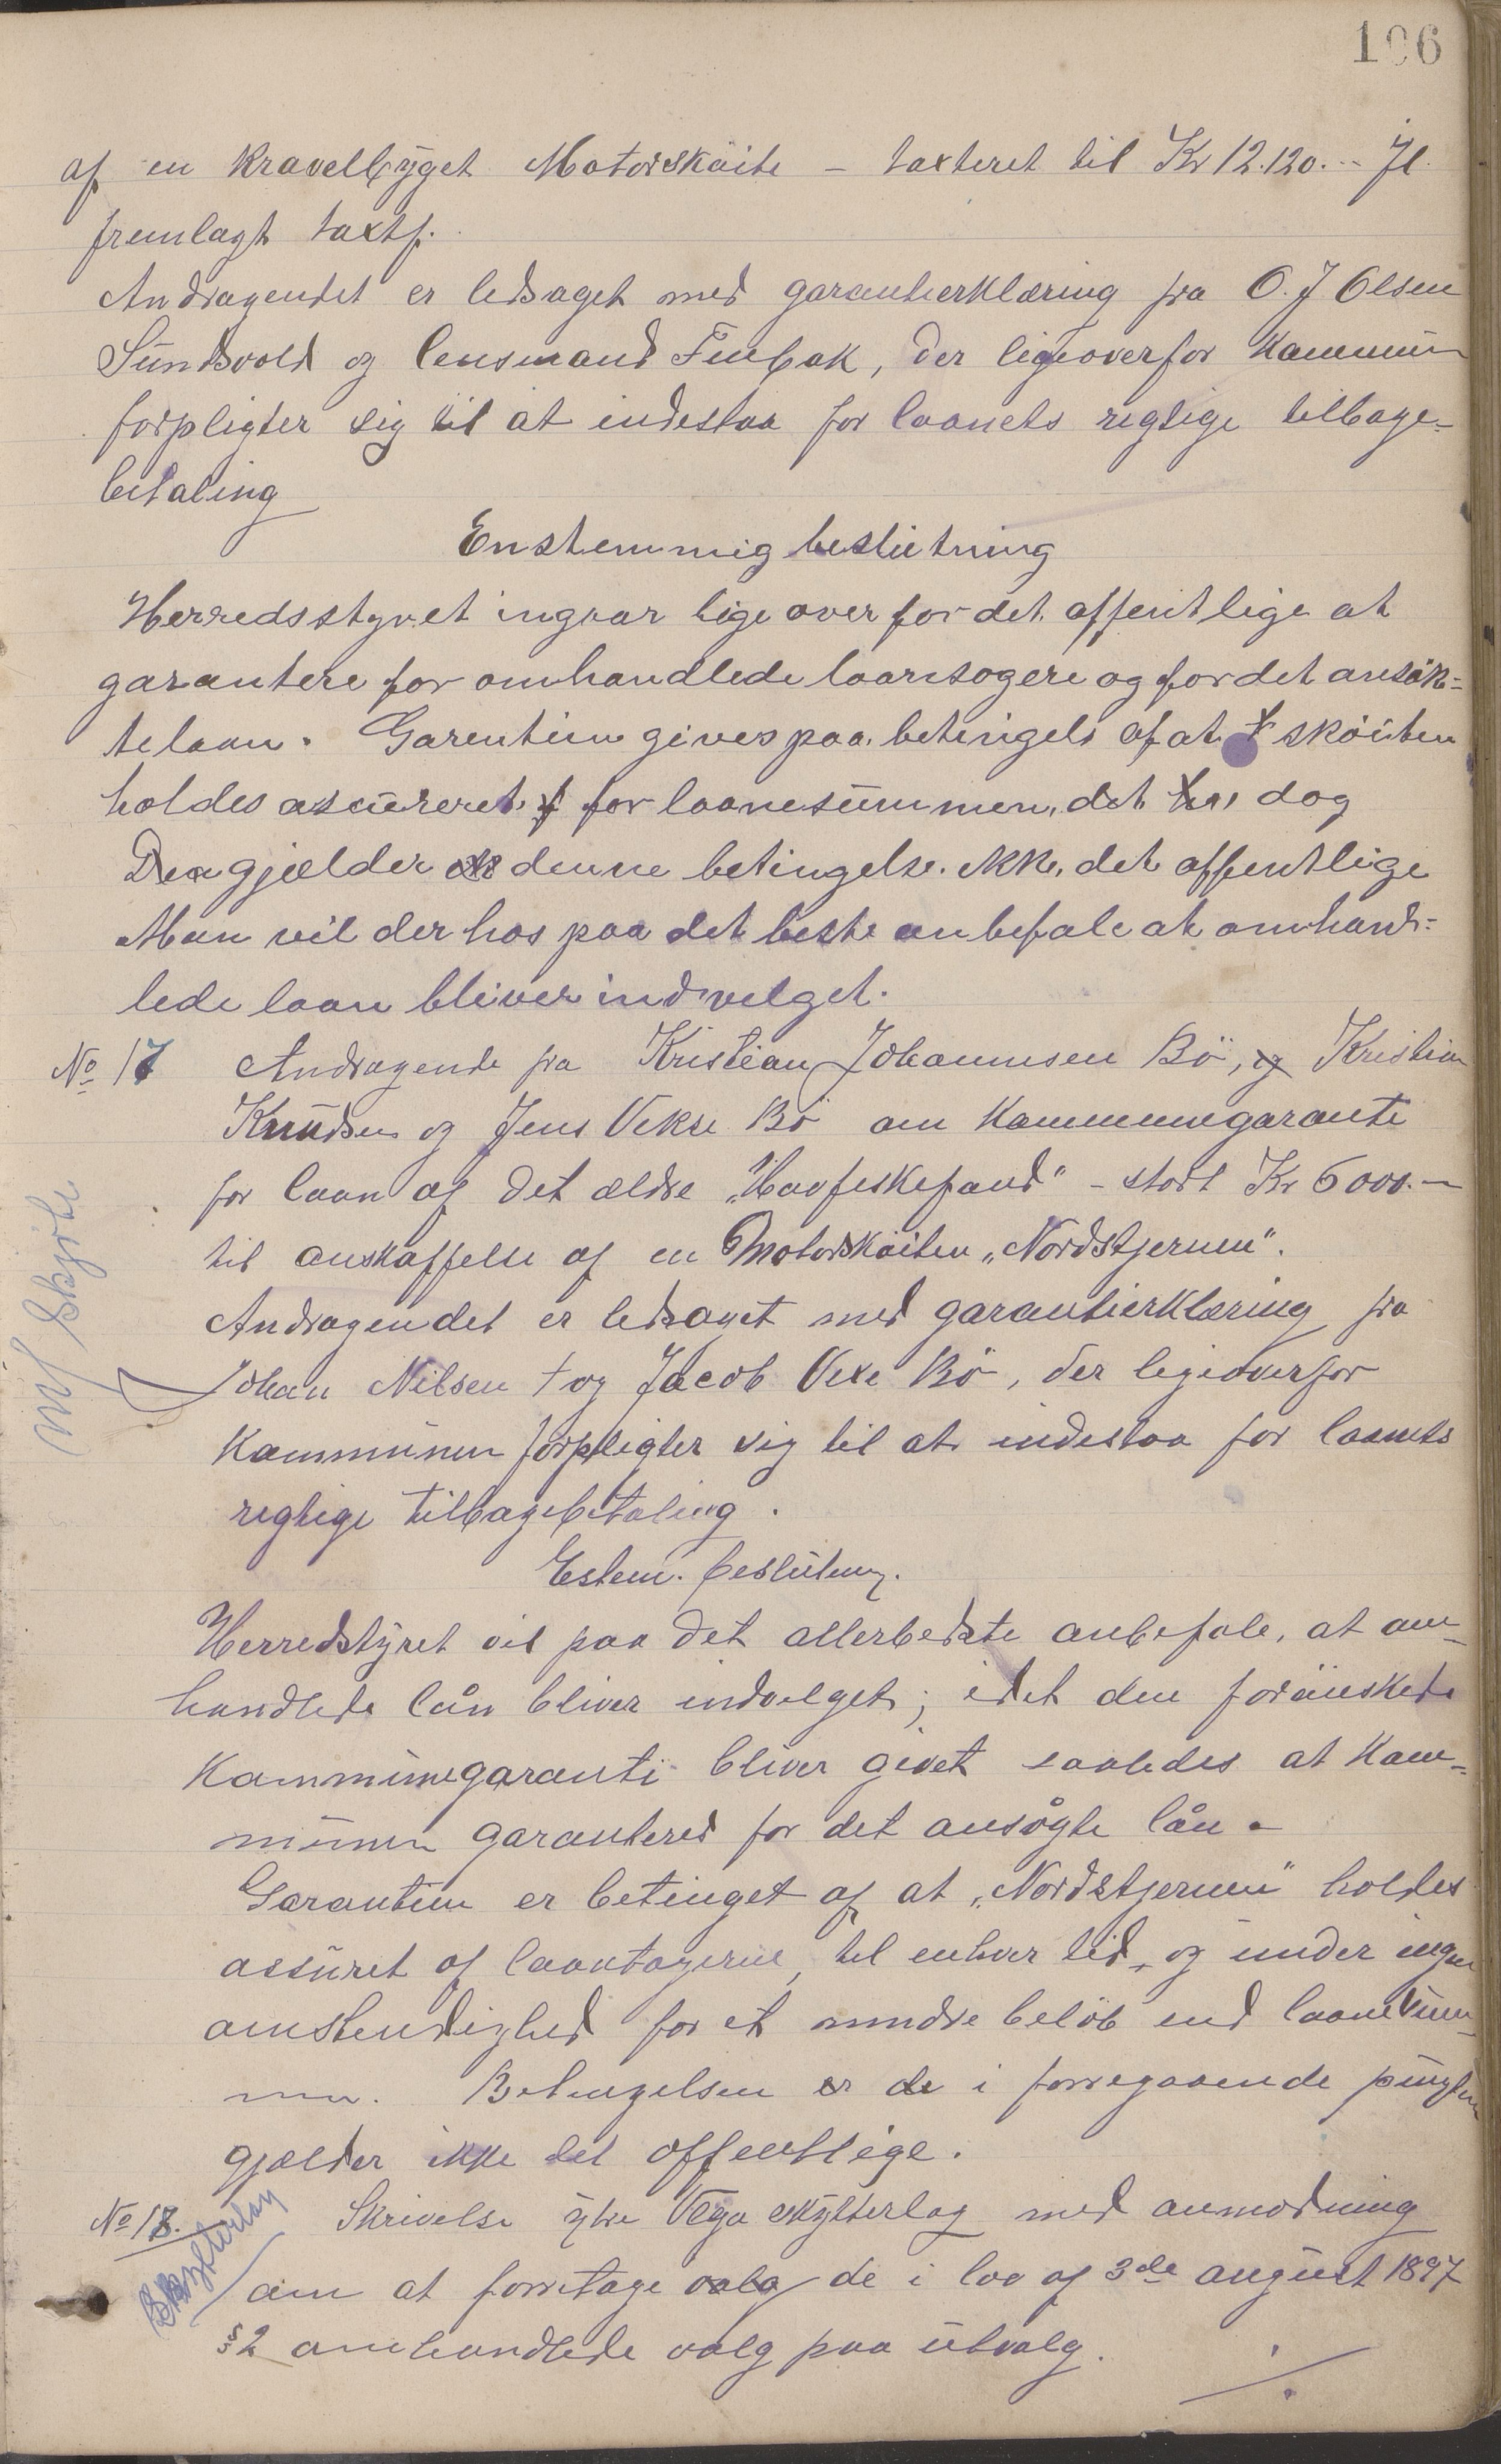 106
af en Kravelbyget Motorsköite - taxteret til Kr 12.120.-- Jfl.
fremlagt taxtf.
Andragendet er ledsaget med garantierklæring fra O. J Olsen
Sundsvold og lensmand Finbak, der ligeoverfor Kommun
forpligter sig til at indestaa for laanets regtige tilbage-
betaling
Enstemmig beslutning
Herredsstyret ingaar lige over for det offentlige at
garantere for omhandlede laansogere og for det ansök-
te laan. Garentien gives paa betingels af at sköiten
holdes ascureret for laanesummen, det dog
gjælder denne betingelse ikke det offentlige
Man vil der hos paa det beste anbefale at omhand-
lede laan bliver indvelget.
No 17 Andragende fra Kristian Johannesen Bö, og Kristian
Knudsen og Jens Vekse Bö om Kommunegaranti
for laan af det ældre "Havfiskefond" - stort Kr 6000.-
til anskaffelse af en Motorsköiten "Nordstjernen".
Andragendet er ledsaget med garantierklæring fra
Johan Nilsen + og Jacob Vexe Bö, der ligeoverfor
Kommunen forpligter sig til at indestaa for laanets
regtige tilbagebetaling.
Estem. beslutning.
Herredstyret vil paa det allerbedste anbefale, at om-
handlede lån bliver indvelget; idet den foröinskede
Kommunegaranti bliver givet saaledes at Kom-
munen garantered for det ansögte lån -
Garantien er betinget af at "Nordstjernen" holdes
assuret af laantagerne, til enhver tid, og under ingen
omstendighed for et mindre belöb end laanesum-
men. Betingelsen er de i forregaaende punkten
gjælder ikke det offentlige.
No 18. Skrivelse fra Vega skytterlag med anmodning
om at forretage valg de i lov af 3de august 1897
§ 2 omhandlede valg paa utvalg.
./.
M/ Skjöite
Skytterlag